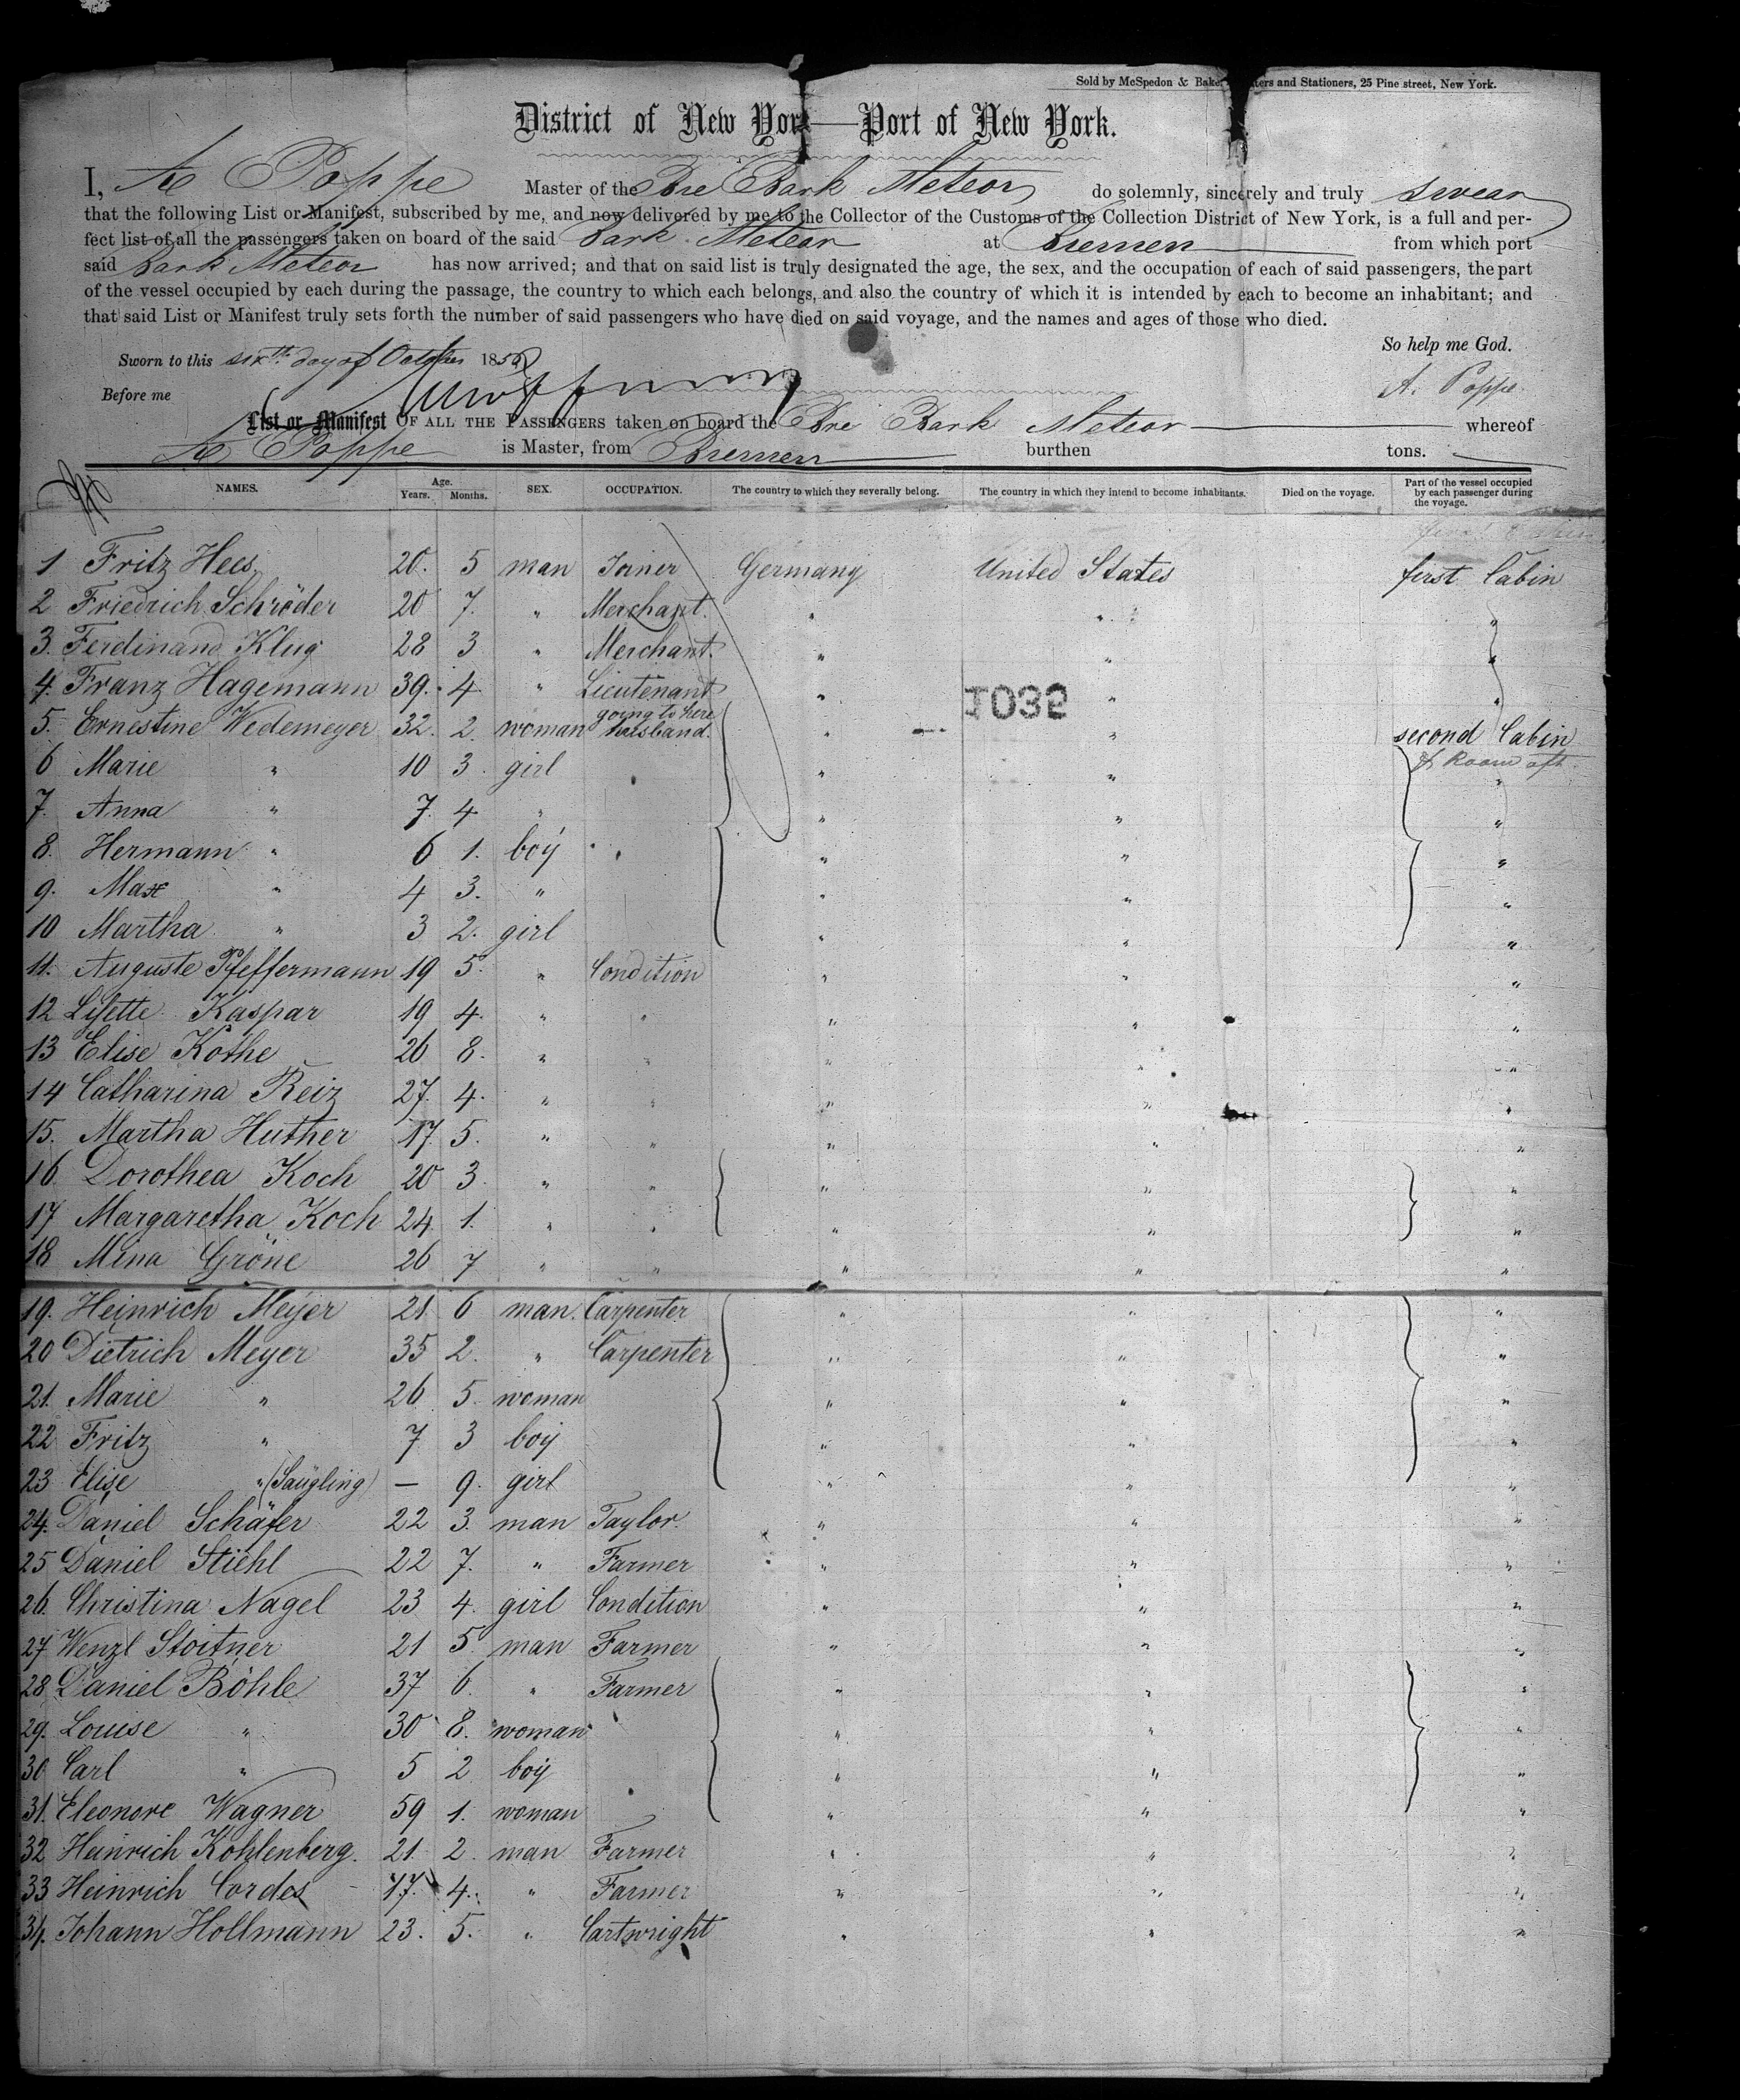 Sold by McSpedon & Baker ters and Stationers, 25 Pine street, New York.
District of New York — Port of New York.
I, A Poppe Master of the Bre Bark Meteor do solemnly, sincerely and truly swear
that the following List or Manifest, subscribed by me, and now delivered by me to the Collector of the Customs of the Collection District of New York, is a full and per-
fect list of all the passengers taken on board of the said Bark Meteor at Bremen from which port
said Bark Meteor has now arrived; and that on said list is truly designated the age, the sex, and the occupation of each of said passengers, the part
of the vessel occupied by each during the passage, the country to which each belongs, and also the country of which it is intended by each to become an inhabitant; and
that said List or Manifest truly sets forth the number of said passengers who have died on said voyage, and the names and ages of those who died.
So help me God.
Sworn to this sixth day of October 185
A. Poppe
Before me
List or Manifest OF ALL THE PASSENGERS taken on board the Bre Bark Meteor whereof
A Poppe is Master, from Bremen burthen tons.
NAMES. Age. Years. Months. SEX. OCCUPATION. The country to which they severally belong. The country in which they intend to become inhabitants. Died on the voyage. Part of the vessel occupied by each passenger during the voyage.
1 Fritz Hees 20. 5 man Joiner Germany United States first Cabin
2 Friedrich Schröder 20 7. " Merchant. " " "
3. Ferdinand Klug 28 3 " Merchant. " " "
4. Franz Hagemann 39. 4 " Lieutenant " 1032 " "
5. Ernestine Wedemeyer 32. 2. woman going to here husband. " " second Cabin
6 Marie " 10 3. girl " " & Room aft. "
7. Anna " 7. 4 " " " "
8. Hermann " 6 1. boy " " "
9. Max " 4 3. " " " "
10 Martha " 3 2. girl " " "
11. Auguste Pfeffermann 19 5. " Condition " " "
12 Lisette Kaspar 19 4. " " " " "
13 Elise Köthe 26 8. " " " " "
14 Catharina Reiz 27. 4. " " " " "
15. Martha Huther 17. 5. " " " " "
16. Dorothea Koch 20 3. " " " " "
17 Margaretha Koch 24. 1. " " " " "
18 Mina Gröne 26 7 " " " " "
19. Heinrich Meyer 21. 6 man. Carpenter " " "
20 Dietrich Meyer 35 2. " Carpenter " " "
21. Marie " 26 5. woman " " "
22 Fritz " 7 3 boy " " "
23 Elise " (Saügling) — 9. girl " " "
24. Daniel Schäfer 22 3. man Taylor. " " "
25 Daniel Stiehl 22 7. " Farmer " " "
26. Christina Nagel 23 4. girl Condition " " "
27 Wenzl Stoitner 21 5. man Farmer " " "
28 Daniel Böhle 37 6. " Farmer " " "
29. Louise " 30 8. woman " " "
30 Carl " 5 2 boy " " "
31. Eleonore Wagner 59 1. woman " " "
32 Heinrich Kohlenberg. 21. 2. man Farmer " " "
33 Heinrich Cordes 17. 4. " Farmer " " "
34. Johann Hollmann 23. 5. " Cartwright " " "